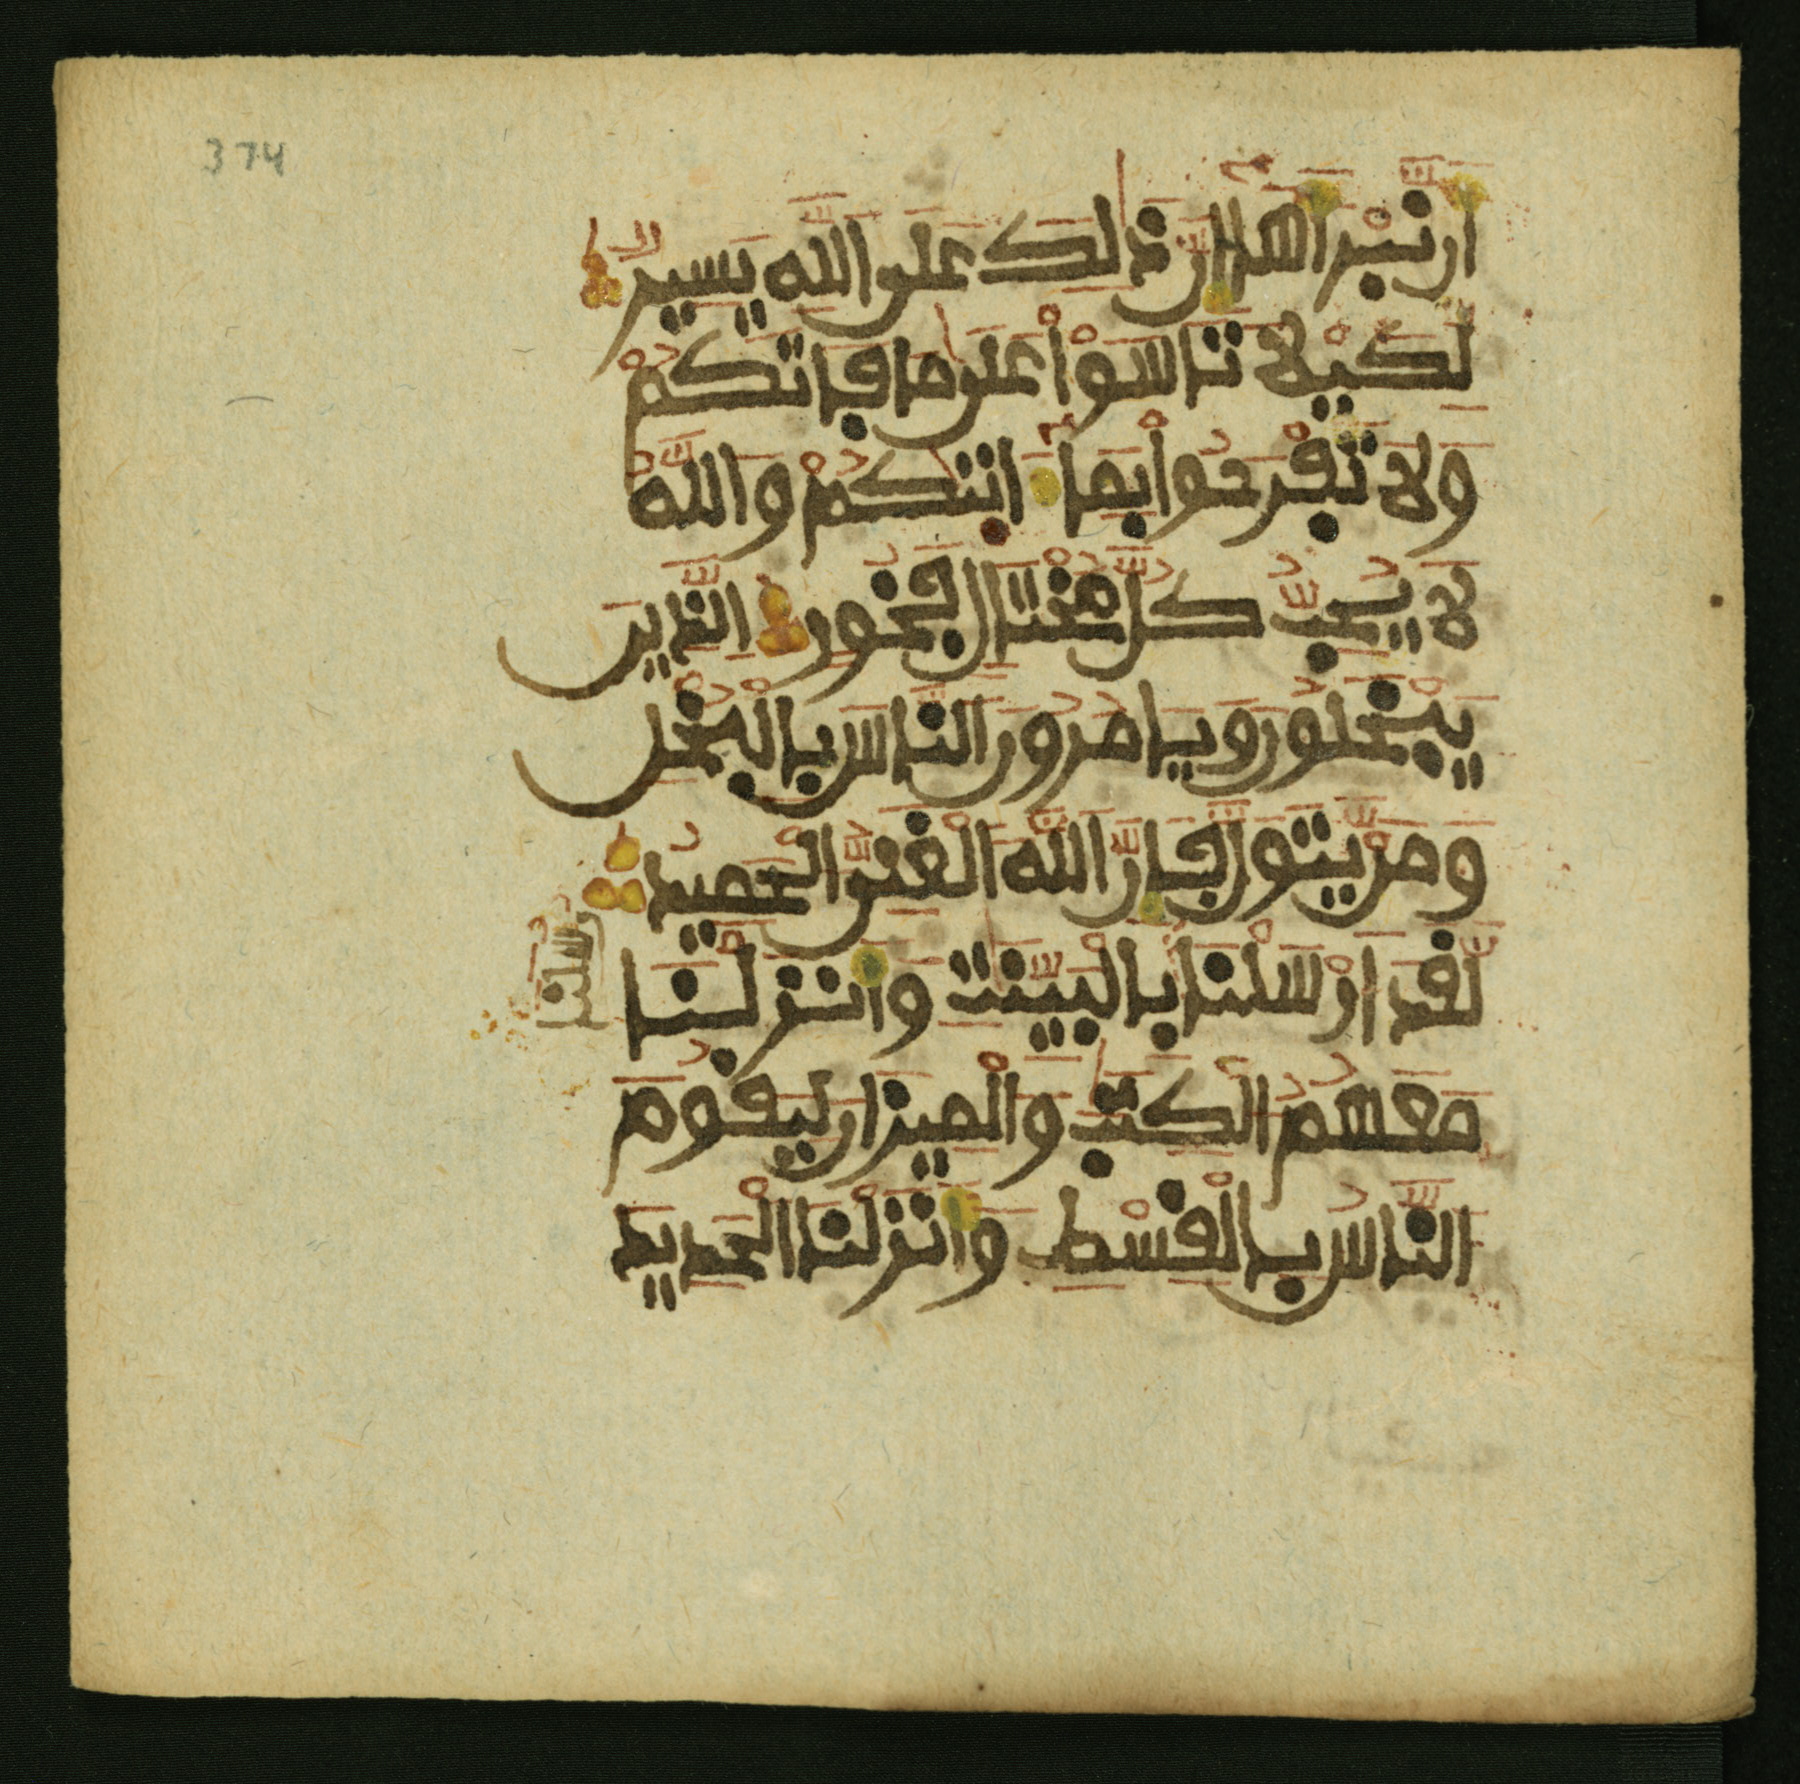 374
ان نبراها ان ذلك على الله يسير
لكيلا تاسوا على ما فاتكم
ولا تفرحوا بما اتيكم والله
لا يحب كل مختال فخور الذين
يبخلون ويامرون الناس بالبخل
ومن يتول فان الله الغني الحميد
لقد ارسلنا بالبينت وانزلنا
رسلنا
معهم الكتب والميزان ليقوم
الناس بالقسط وانزلنا الحديد